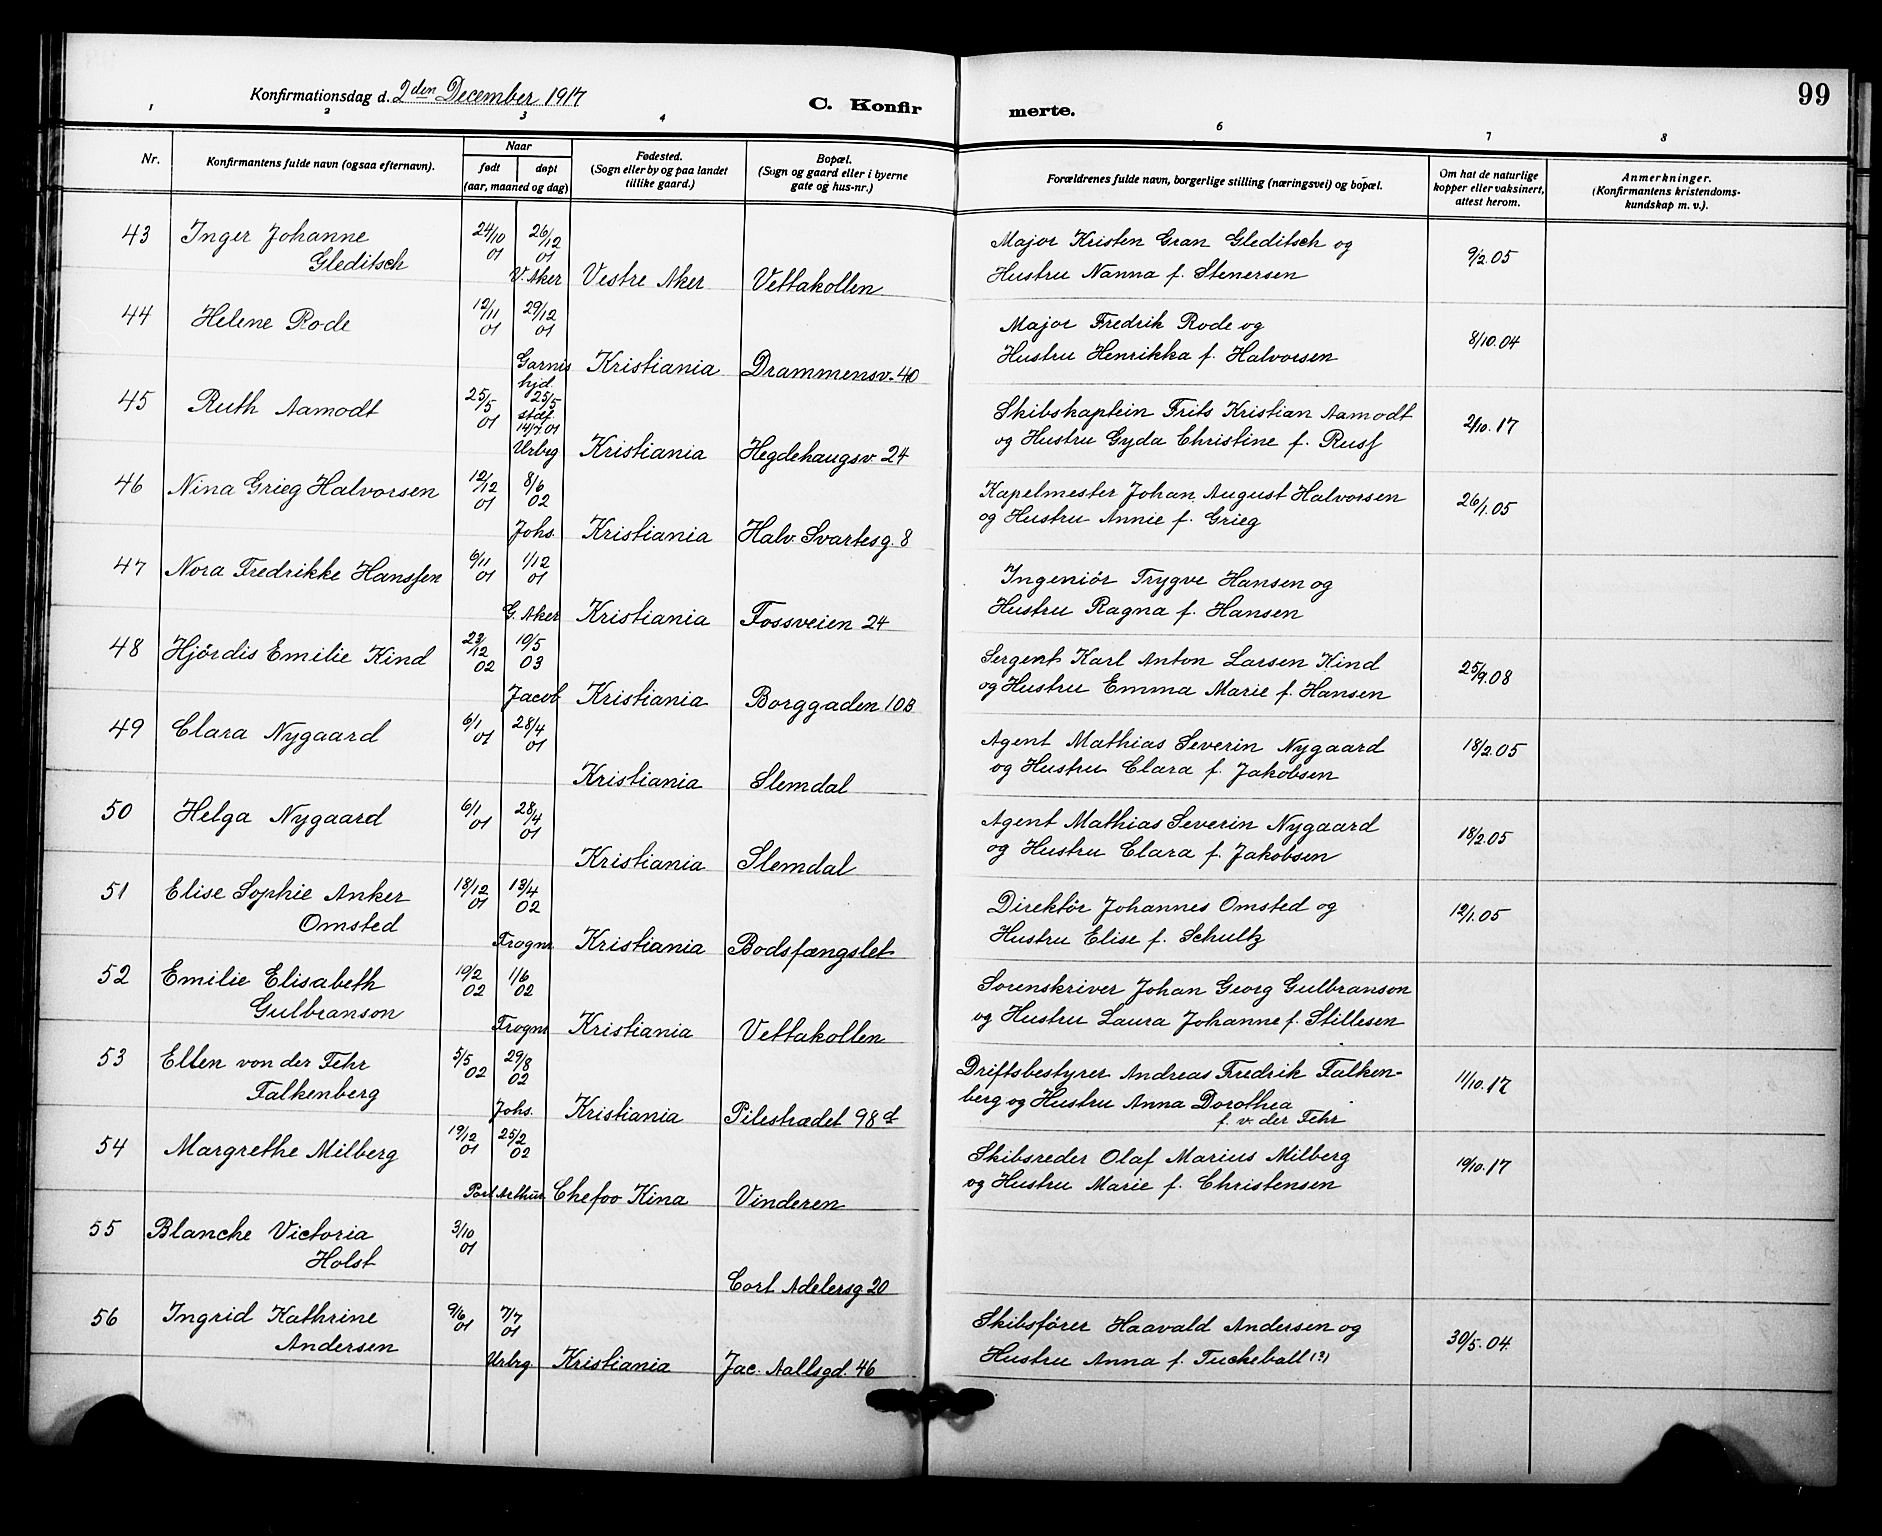 99
Konfirmationsdag d. 2den December 1917
C. Konfirmerte.
1 2 3 4 6 7 8
Nr.
Konfirmantens fulde navn (ogsaa efternavn).
Naar
født døpt
(aar, maaned og dag)
Fødested.
(Sogn eller by og paa landet
tillike gaard.)
Bopæl.
(Sogn og gaard eller i byerne
gate og hus-nr.)
Forældrenes fulde navn, borgerlige stilling (næringsvei) og bopæl.
Om hat de naturlige
kopper eller vaksinert,
attest herom.
Anmerkninger.
(Konfirmantens kristendoms-
kundskap m. v.).
43 Inger Johanne
Gleditsch
24/10 01
26/12 01
V. Aker Vestre Aker Vettakollen
Major Kristen Gran Gleditsch og
Hustru Nanna f. Stenersen
9/2.05
44 Helene Rode
12/11 01
29/12 01
Garnis Kristiania Drammensv. 40
Major Fredrik Rode og
Hustru Henrikka f. Halvorsen
8/10.04
45 Ruth Aamodt
25/5 01
hjd.
25/5
stdf.
14/7 01
Urbrg Kristiania Hegdehaugsv. 24
Skibskaptein Frits Kristian Aamodt
og Hustru Gyda Christine f. Rusf
2/10.17
46 Nina Grieg Halvorsen
12/12 01
8/6 02
Johs. Kristiania Halv. Svartesg. 8
Kapelmester Johan August Halvorsen
og Hustru Annie f. Grieg
26/1.05
47 Nora Fredrikke Hansfen
6/11 01
1/12 01
G. Aker Kristiania Fossveien 24
Ingeniør Trygve Hansen og
Hustru Ragna f. Hansen
48 Hjørdis Emilie Kind
23/12 02
10/5 03
Jacob Kristiania Borggaden 10B
Sergent Karl Anton Larsen Kind
og Hustru Emma Marie f. Hansen
25/9.08
49 Clara Nygaard
6/1 01
28/4 01
Kristiania Slemdal
Agent Mathias Severin Nygaard
og Hustru Clara f. Jakobsen
18/2.05
50 Helga Nygaard
6/1 01
28/4 01
Kristiania Slemdal
Agent Mathias Severin Nygaard
og Hustru Clara f. Jakobsen
18/2.05
51 Elise Sophie Anker
Omsted
18/12 01
13/4 02
Frogner Kristiania Bodsfængslet
Direktør Johannes Omsted og
Hustru Elise f. Schultz
12/1.05
52 Emilie Elisabeth
Gulbranson
19/2 02
1/6 02
Frogner Kristiania Vettakollen
Sorenskriver Johan Georg Gulbranson
og Hustru Laura Johanne f. Stillesen
53 Ellen von der Fehr
Falkenberg
5/5 02
29/8 02
Johs. Kristiania Pilestrædet 98
Driftsbestyrer Andreas Fredrik Falken-
berg og Hustru Anna Dorothea
f. v. der Fehr
11/10.17
54 Margrethe Milberg
19/12 01
25/2 02
Port Arthur Chefoo Kina Vinderen
Skibsreder Olaf Marius Milberg
og Hustru Marie f. Christensen
19/10.17
55 Blanche Victoria
Holst
3/10 01
Cort Adelersg 20
56 Ingrid Kathrine
Andersen
9/6 01
7/7 01
Urbrg Kristiania Jac. Aallsgd. 46
Skibsfører Haavald Andersen og
Hustru Anna f. Tuckeball (?)
30/5.04